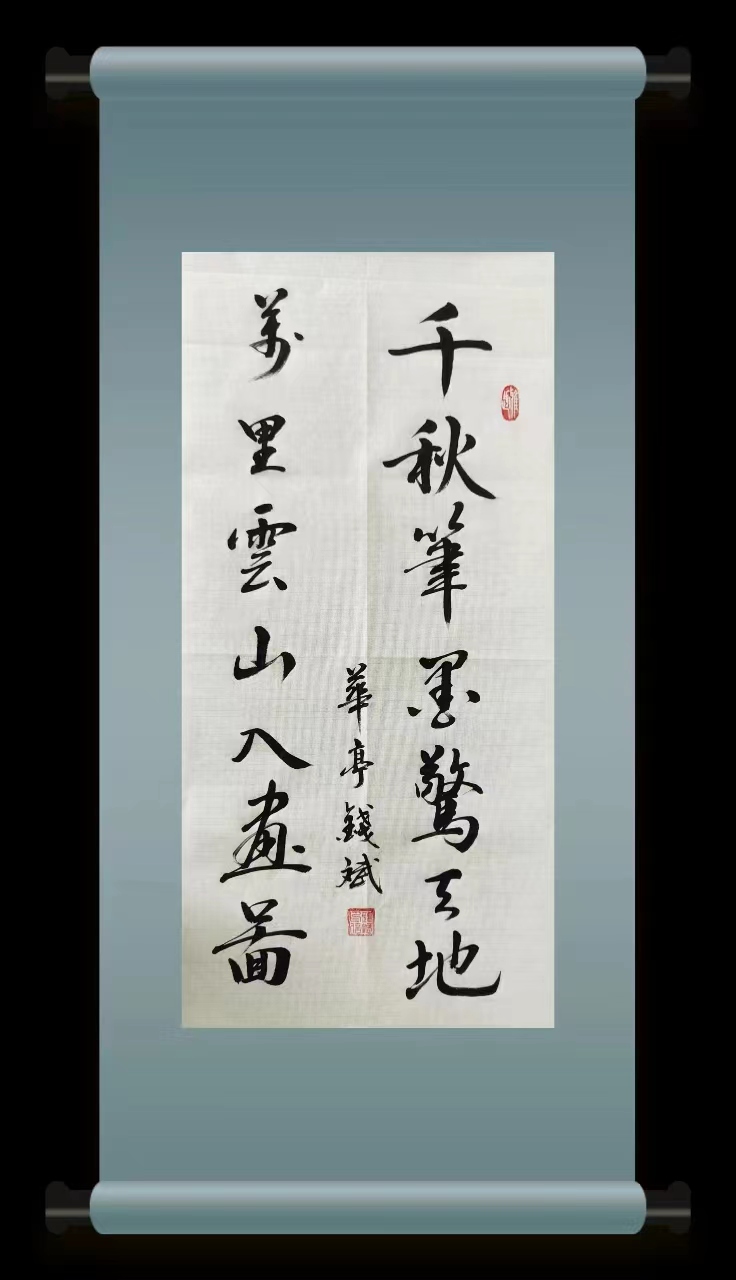 千秋筆墨驚天地
萬里雲山入畫圖
華亭錢斌